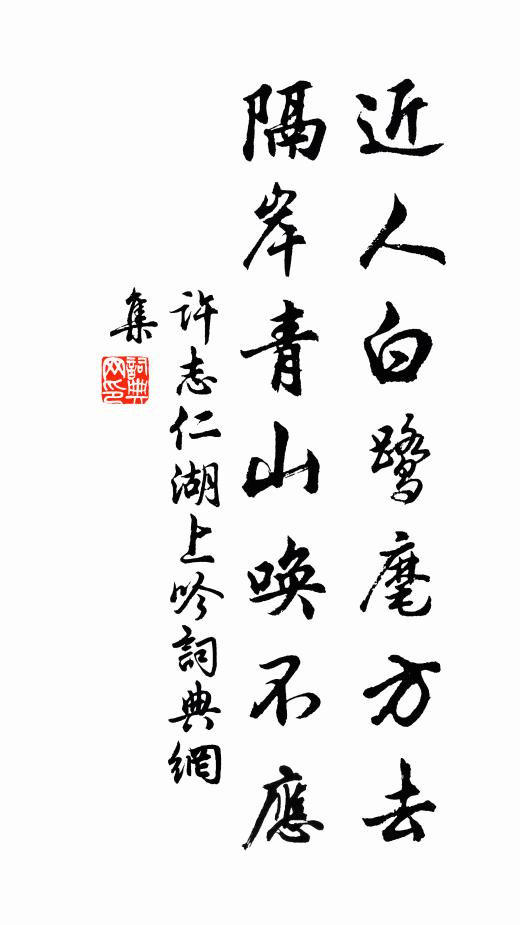 近人白鷺麾方去
隔岸青山喚不應
許志仁湖上吟詞典網
集
詞典網印